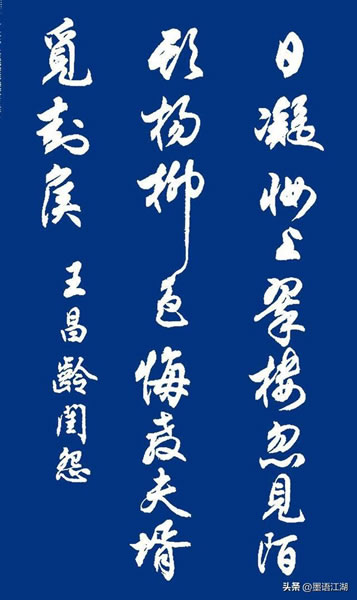 日凝妝上翠樓忽見陌
頭楊柳色悔教夫壻
覓封侯
王昌齡閨怨
头条 @墨语江湖